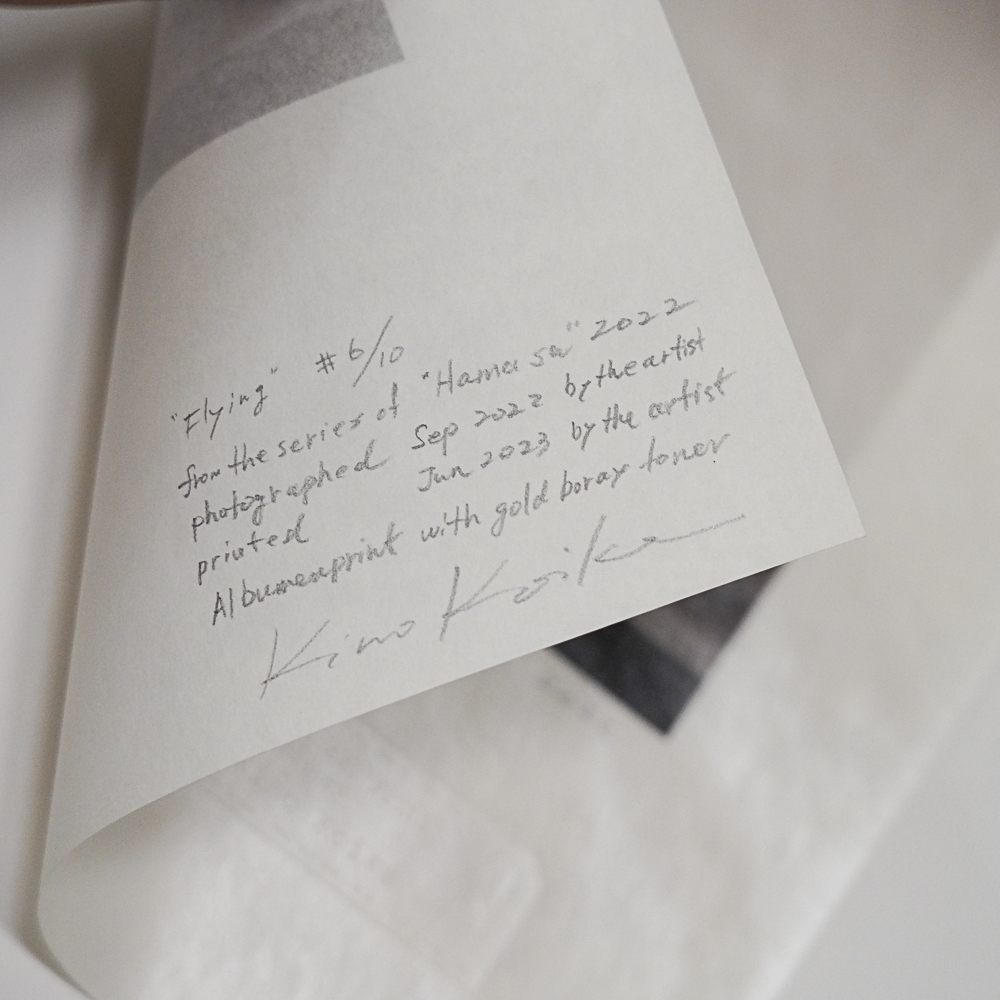 "Flying" #6/10
from the series of "Hamasa" 2022
photographed Sep 2022 by the artist
printed Jun 2023 by the artist
Albumenprint with gold borax toner
Kino Koike